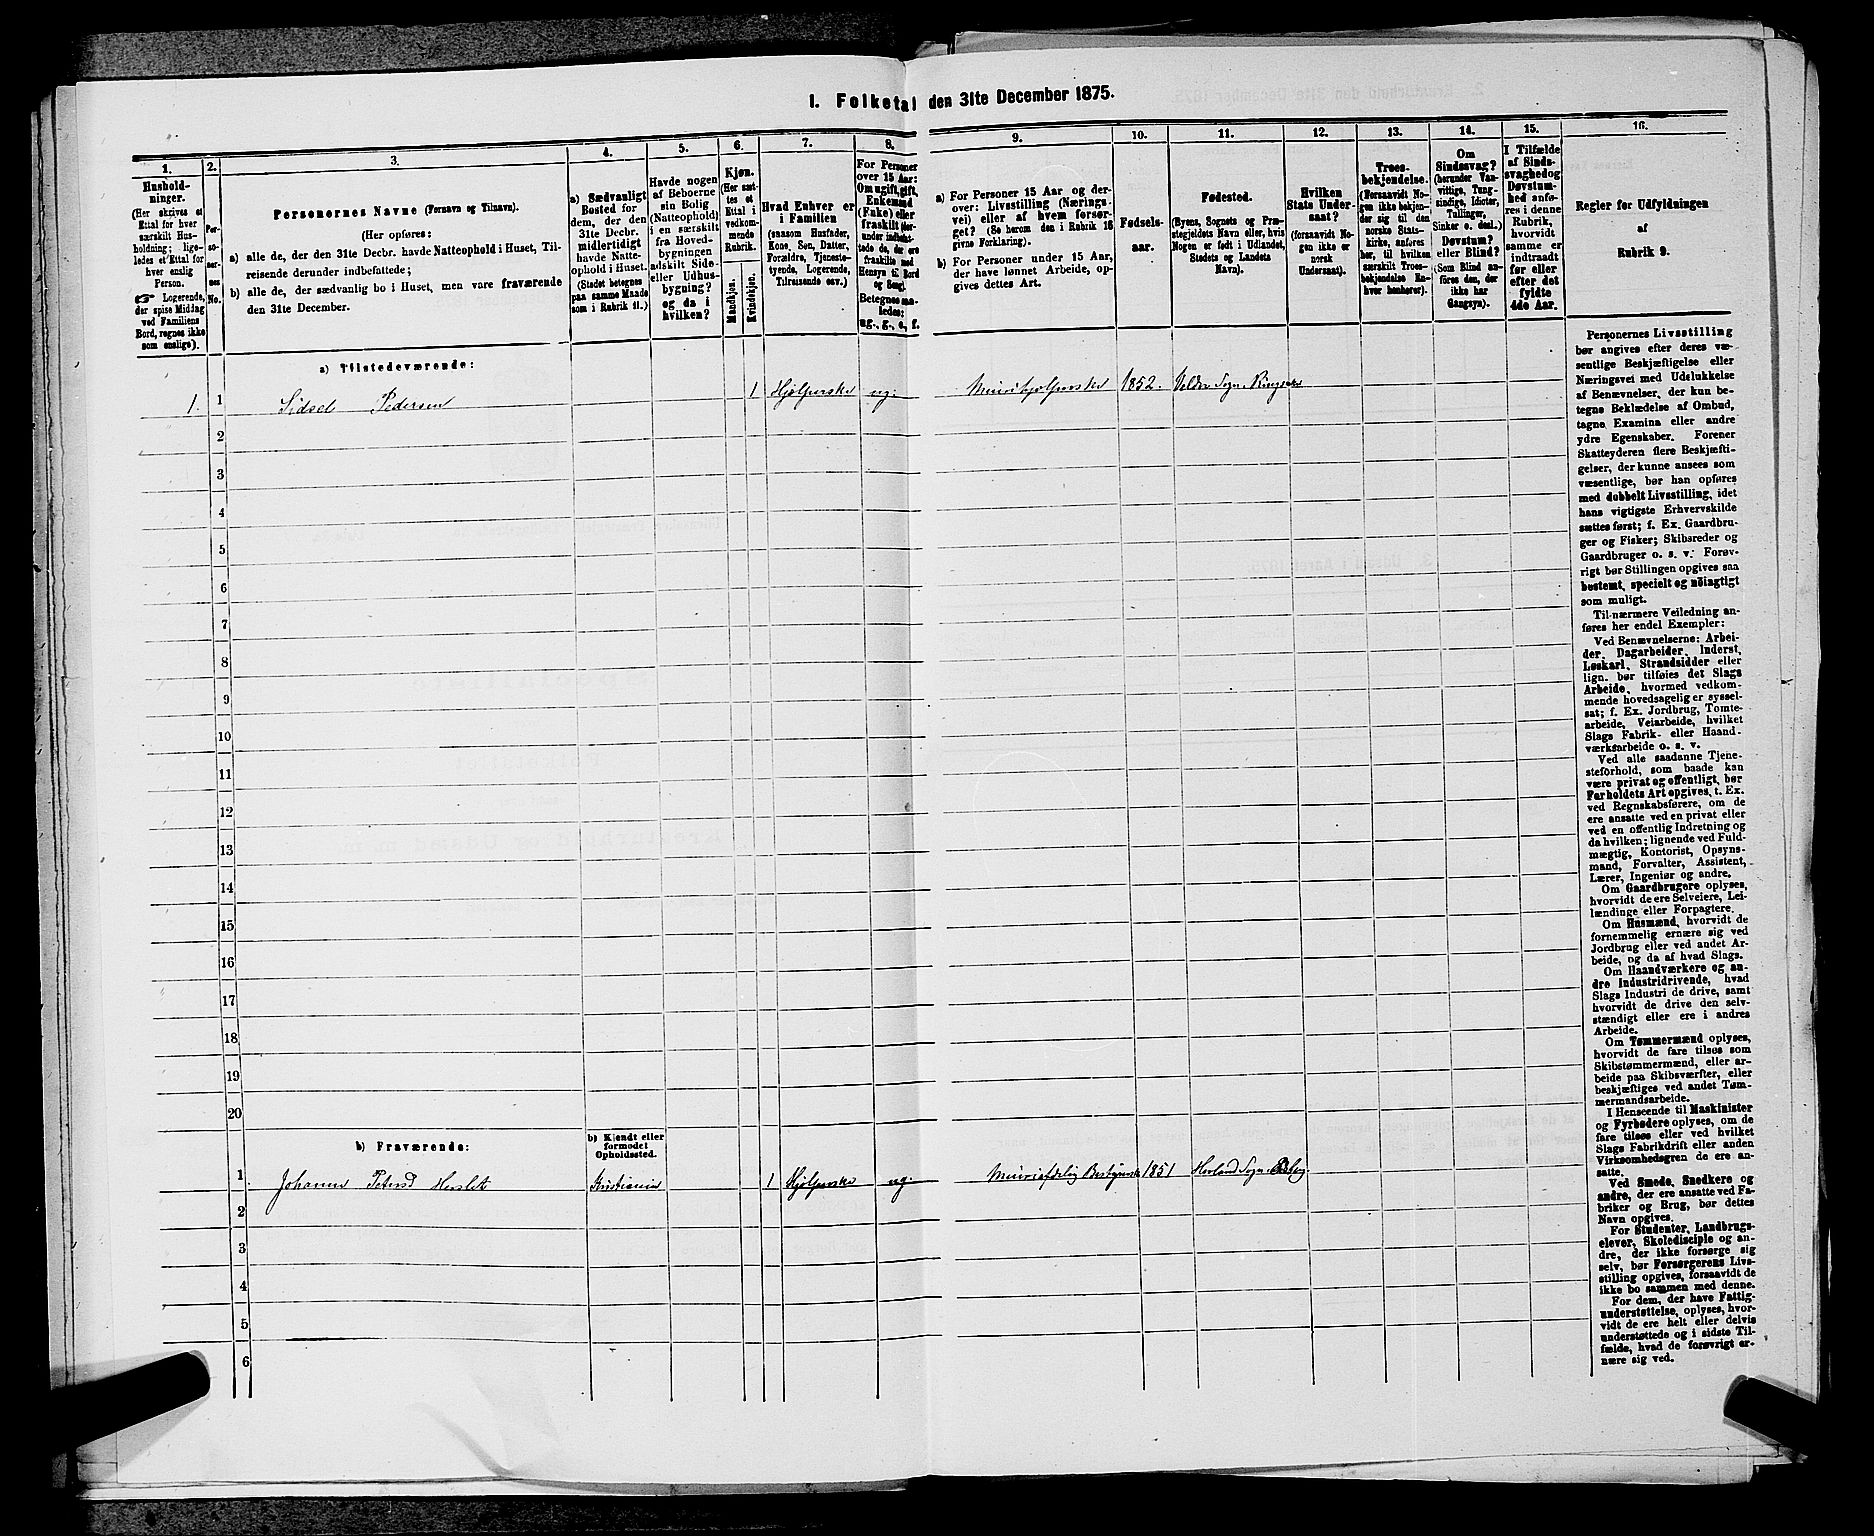 I. Folketal den 31te December 1875.
1.
Hushold-
ninger.
(Her skrives et
Ettal for hver
særskilt Hus-
holdning; lige-
ledes et Ettal for
hver enslig
Person.
☞ Logerende,
der spise Middag
ved Familiens
Bord, regnes ikke
som enslige).
2.
Per-
so-
ner-
nes
No.
3.
Personernes Navne (Fornavn og Tilnavn).
(Her opføres:
a) alle de, der den 31te Decbr. havde Natteophold i Huset, Til-
reisende derunder indbefattede;
b) alle de, der sædvanlig bo i Huset, men vare fraværende
den 31te December.
4.
a) Sædvanligt
Bosted for
dem, der den
31te Decbr.
midlertidigt
havde Natte-
ophold i Huset.
(Stedet betegnes
paa samme Maade
som i Rubrik 11.)
5.
Havde nogen
af Beboerne
sin Bolig
(Natteophold)
i en særskilt
fra Hoved-
bygningen
adskilt Side-
eller Udhus-
bygning?
og da i
hvilken?
6.
Kjøn.
(Her sæt-
tes et
Ettal i
vedkom-
mende
Rubrik.
Mandkjøn.
Kvindekjøn.
7.
Hvad Enhver er
i Familien
(saasom Husfader,
Kone, Søn, Datter,
Forældre, Tjeneste-
tyende, Logerende,
Tilreisende osv.)
8.
For Personer
over 15 Aar:
Om ugift, gift,
Enkemand
(Enke) eller
fraskilt (her-
under indbefat-
tede de, der ere
fraskilte med
Hensyn til Bord
og Seng).
Betegnes saa-
ledes:
ug., g., e., f.
9.
a) For Personer 15 Aar og der-
over: Livsstilling (Nærings-
vei) eller af hvem forsør-
get? (Se herom den i Rubrik 16
givne Forklaring).
b) For Personer under 15 Aar,
der have lønnet Arbeide, op-
gives dettes Art.
10.
Fødsels-
aar.
11.
Fødested.
(Byens, Sognets og Præ-
stegjeldets Navn eller, hvis
Nogen er født i Udlandet,
Stedets og Landets
Navn).
12.
Hvilken
Stats Under-
saat?
(forsaavidt No-
gen ikke er
norsk
Undersaat).
13.
Troes-
bekjendelse.
(Forsaavidt No-
gen ikke bekjen-
der sig til den
norske Stats-
kirke, anføres
her, til hvilken
særskilt Troes-
bekjendelse En-
hver henhører).
14.
Om
Sindssvag?
(herunder Van-
vittige, Tung-
sindige, Idioter,
Tullinger,
Sinker o. desl.)
Døvstum?
eller Blind?
(Som Blind an-
føres den, der
ikke har
Gangsyn).
15.
I Tilfælde
af Sinds-
svaghed og
Døvstum-
hed anfø-
res i denne
Rubrik,
hvorvidt
samme er
indtraadt
før eller
efter det
fyldte
4de Aar.
16.
Regler for Udfyldningen
af
Rubrik 9.
a) Tilstedeværende:
1. 1 Sidsel Pedersen 1 Hjælperske ug. 1852. Sogn Ringsaker
2
3
4
5
6
7
8
9
10
11
12
13
14
15
16
17
18
19
20
b) Fraværende:
b) Kjendt eller
formodet
Opholdssted.
1 Johanne Petersd Herslet Kristiania 1 Hjælperske ug. 1851 Sogn
2
3
4
5
6
Personernes Livsstilling
bør angives efter deres væ-
sentlige Beskjæftigelse eller
Næringsvei med Udelukkelse
af Benævnelser, der kun be-
tegne Beklædelse af Ombud,
tagne Examina eller andre
ydre Egenskaber. Forener
Skatteyderen flere Beskjæfti-
gelser, der kunne ansees som
væsentlige, bør han opføres
med dobbelt Livsstilling, idet
hans vigtigste Erhvervskilde
sættes først; f. Ex. Gaardbru-
ger og Fisker; Skibsreder og
Gaardbruger o. s. v. Forøv-
rigt bør Stillingen opgives saa
bestemt, specielt og nöiagtigt
som muligt.
Til nærmere Veiledning an-
føres her endel Exempler:
Ved Benævnelserne: Arbei-
der, Dagarbeider, Inderst,
Løskarl, Strandsidder eller
lign. bør tilføies det Slags
Arbeide, hvormed vedkom-
mende hovedsagelig er syssel-
sat; f. Ex. Jordbrug, Tomte-
arbeide, Veiarbeide, hvilket
Slags Fabrik- eller Haand-
værksarbeide o. s. v.
Ved alle saadanne Tjene-
steforhold, som baade kan
være privat og offentligt, bør
Forholdets Art opgives, t. Ex.
ved Regnskabsførere, om de
ere ansatte ved en privat eller
ved en offentlig Indretning og
da hvilken; lignende ved Fuld-
mægtig, Kontorist, Opsyns-
mand, Forvalter, Assistent,
Lærer, Ingeniør og andre.
Om Gaardbrugere oplyses,
hvorvidt de ere Selveiere, Lei-
lændinge eller Forpagtere.
Om Husmænd, hvorvidt de
fornemmelig ernære sig ved
Jordbrug eller ved andet Ar-
beide, og da af hvad Slags.
Om Haandværkere og an-
dre Industridrivende, hvad
Slags Industri de drive, samt
hvorvidt de drive den selv-
stændigt eller ere i andres
Arbeide.
Om Tømmermænd oplyses,
hvorvidt de fare tilsøs som
Skibstømmermænd, eller ar-
beide paa Skibsværfter, eller
beskjæftiges ved andet Tøm-
mermandsarbeide.
I Henseende til Maskinister
og Fyrbødere oplyses, om de
fare tilsøs eller ved hvilket
Slags Fabrikdrift eller anden
Virksomhedsgren de ere an-
satte.
Ved Smede, Snedkere og
andre, der ere ansatte ved Fa-
briker og Brug, bør dettes
Navn opgives.
For Studenter, Landbrugs-
elever, Skoledisciple og an-
dre, der ikke forsørge sig
selv, bør Forsørgerens Livs-
stilling opgives, forsaavidt de
ikke bo sammen med denne.
For dem, der have Fattig-
understøttelse, oplyses, hvor-
vidt de ere helt eller delvis
understøttede og i sidste Til-
fælde, hvad de forøvrigt er-
nære sig ved.